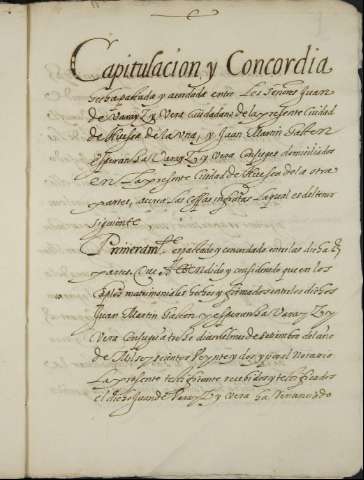 Capitulacion y Concordia
hecha pactada y acordada entre los Señores Juan
de Varay y Vera Ciudadano de la presente Ciudad
de Huesca de la una, y Juan Martin
Esperanza Varay y Vera Conjuges domiciliados
en la presente Ciudad de Huesca de la otra
partes, acerca las cossas infrascritas la qual es del tenor
siguiente
Primeram.te es pactado y concordado entre las dichas
partes, Que atendido y considerado que en los
Caplos matrimoniales hechos y firmados entre los dichos
Juan Martin y Esperanza Varay y
Vera Conjuges a dias del mes de setiembre del año
de Mil seyscientos Veynte y dos, y por el Notario
la presente testificante recebidos y testificados
el dicho Juan de Varay y Vera